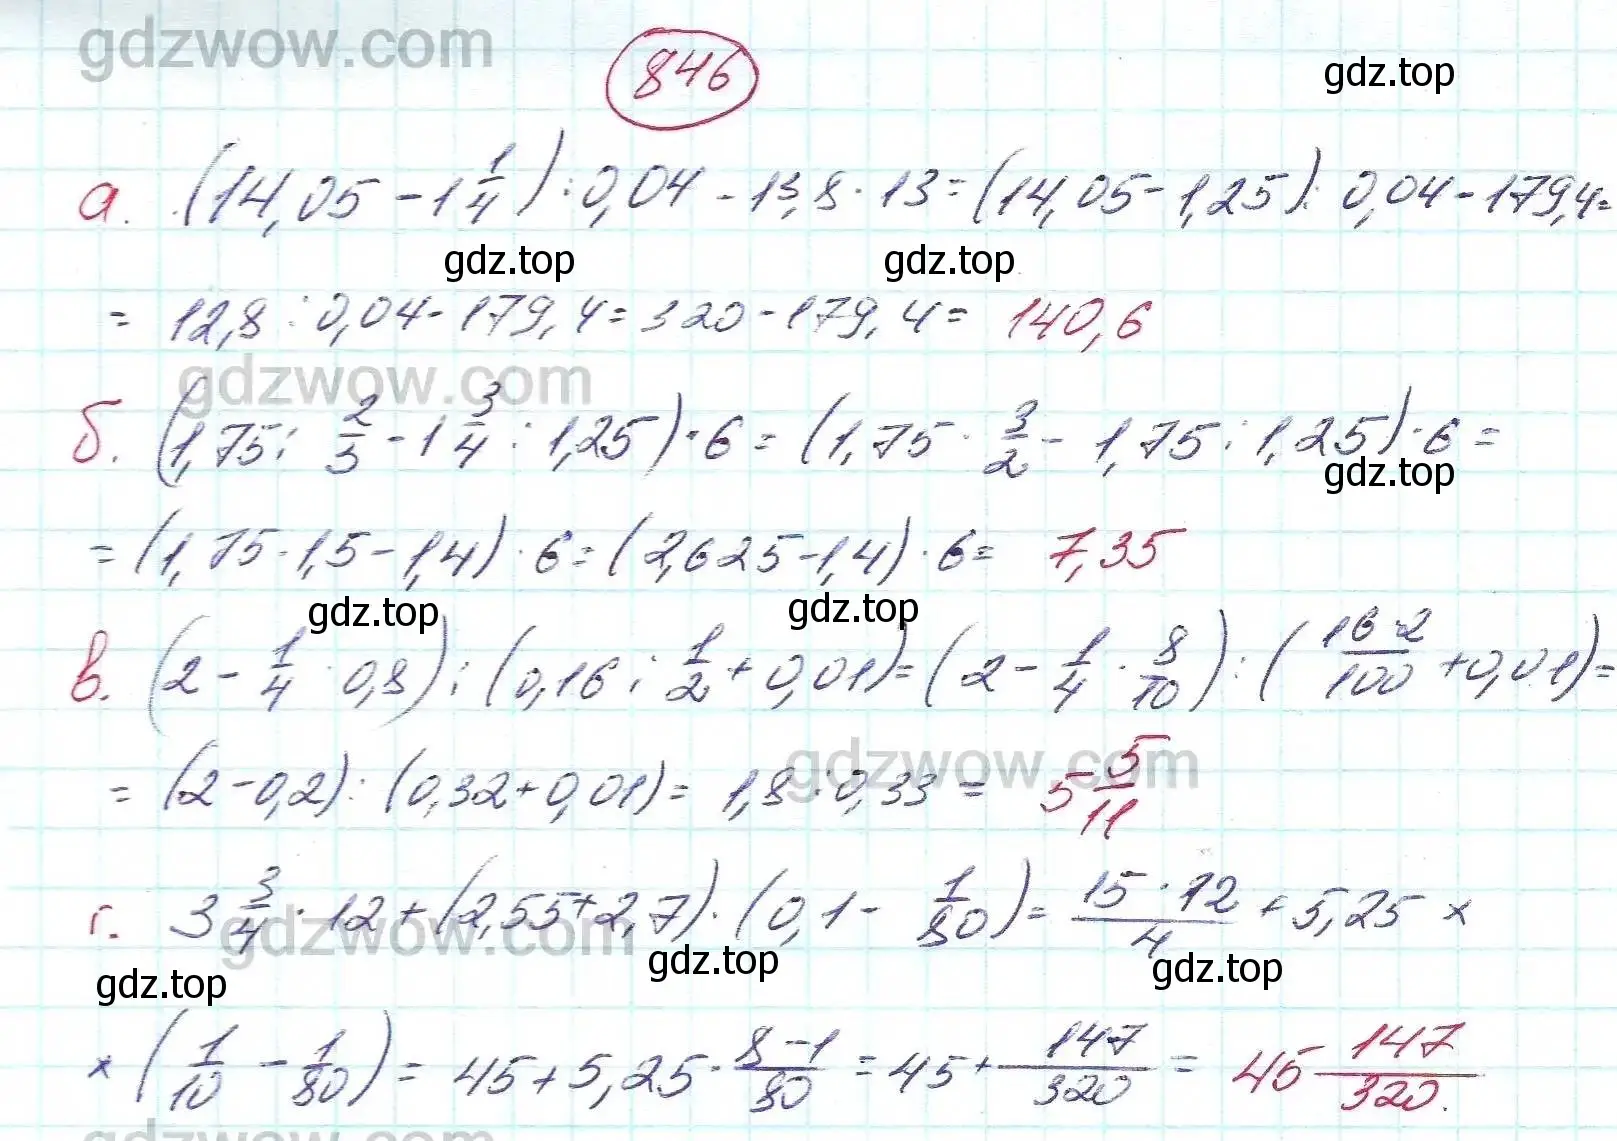 gdzwow.com
846
gdz.top
а. (14,05 - 1 1/4) : 0,04 - 13,8 · 13 = (14,05 - 1,25) : 0,04 - 179,4 =
gdz.top gdz.top
= 12,8 : 0,04 - 179,4 = 320 - 179,4 = 140,6
gdzwow.com
б. (1,75 : 2/3 - 1 3/4 : 1,25) · 6 = (1,75 · 3/2 - 1,75 : 1,25) · 6 =
gdz.top
= (1,75 · 1,5 - 1,4) · 6 = (2,625 - 1,4) · 6 = 7,35
gdz.top gdz.top
в. (2 - 1/4 · 0,8) : (0,16 : 1/2 + 0,01) = (2 - 1/4 · 8/10) : (16·2/100 + 0,01) =
gdzwow.com
= (2 - 0,2) : (0,32 + 0,01) = 1,8 : 0,33 = 5 5/11
г. 3 3/4 · 12 + (2,55 + 2,7) · (0,1 - 1/80) = 15 · 12/4 + 5,25 ×
gdzwow.com
gdz.top gdz.top gdz.top
× (1/10 - 1/80) = 45 + 5,25 · 8-1/80 = 45 + 147/320 = 45 147/320.
gdzwow.com